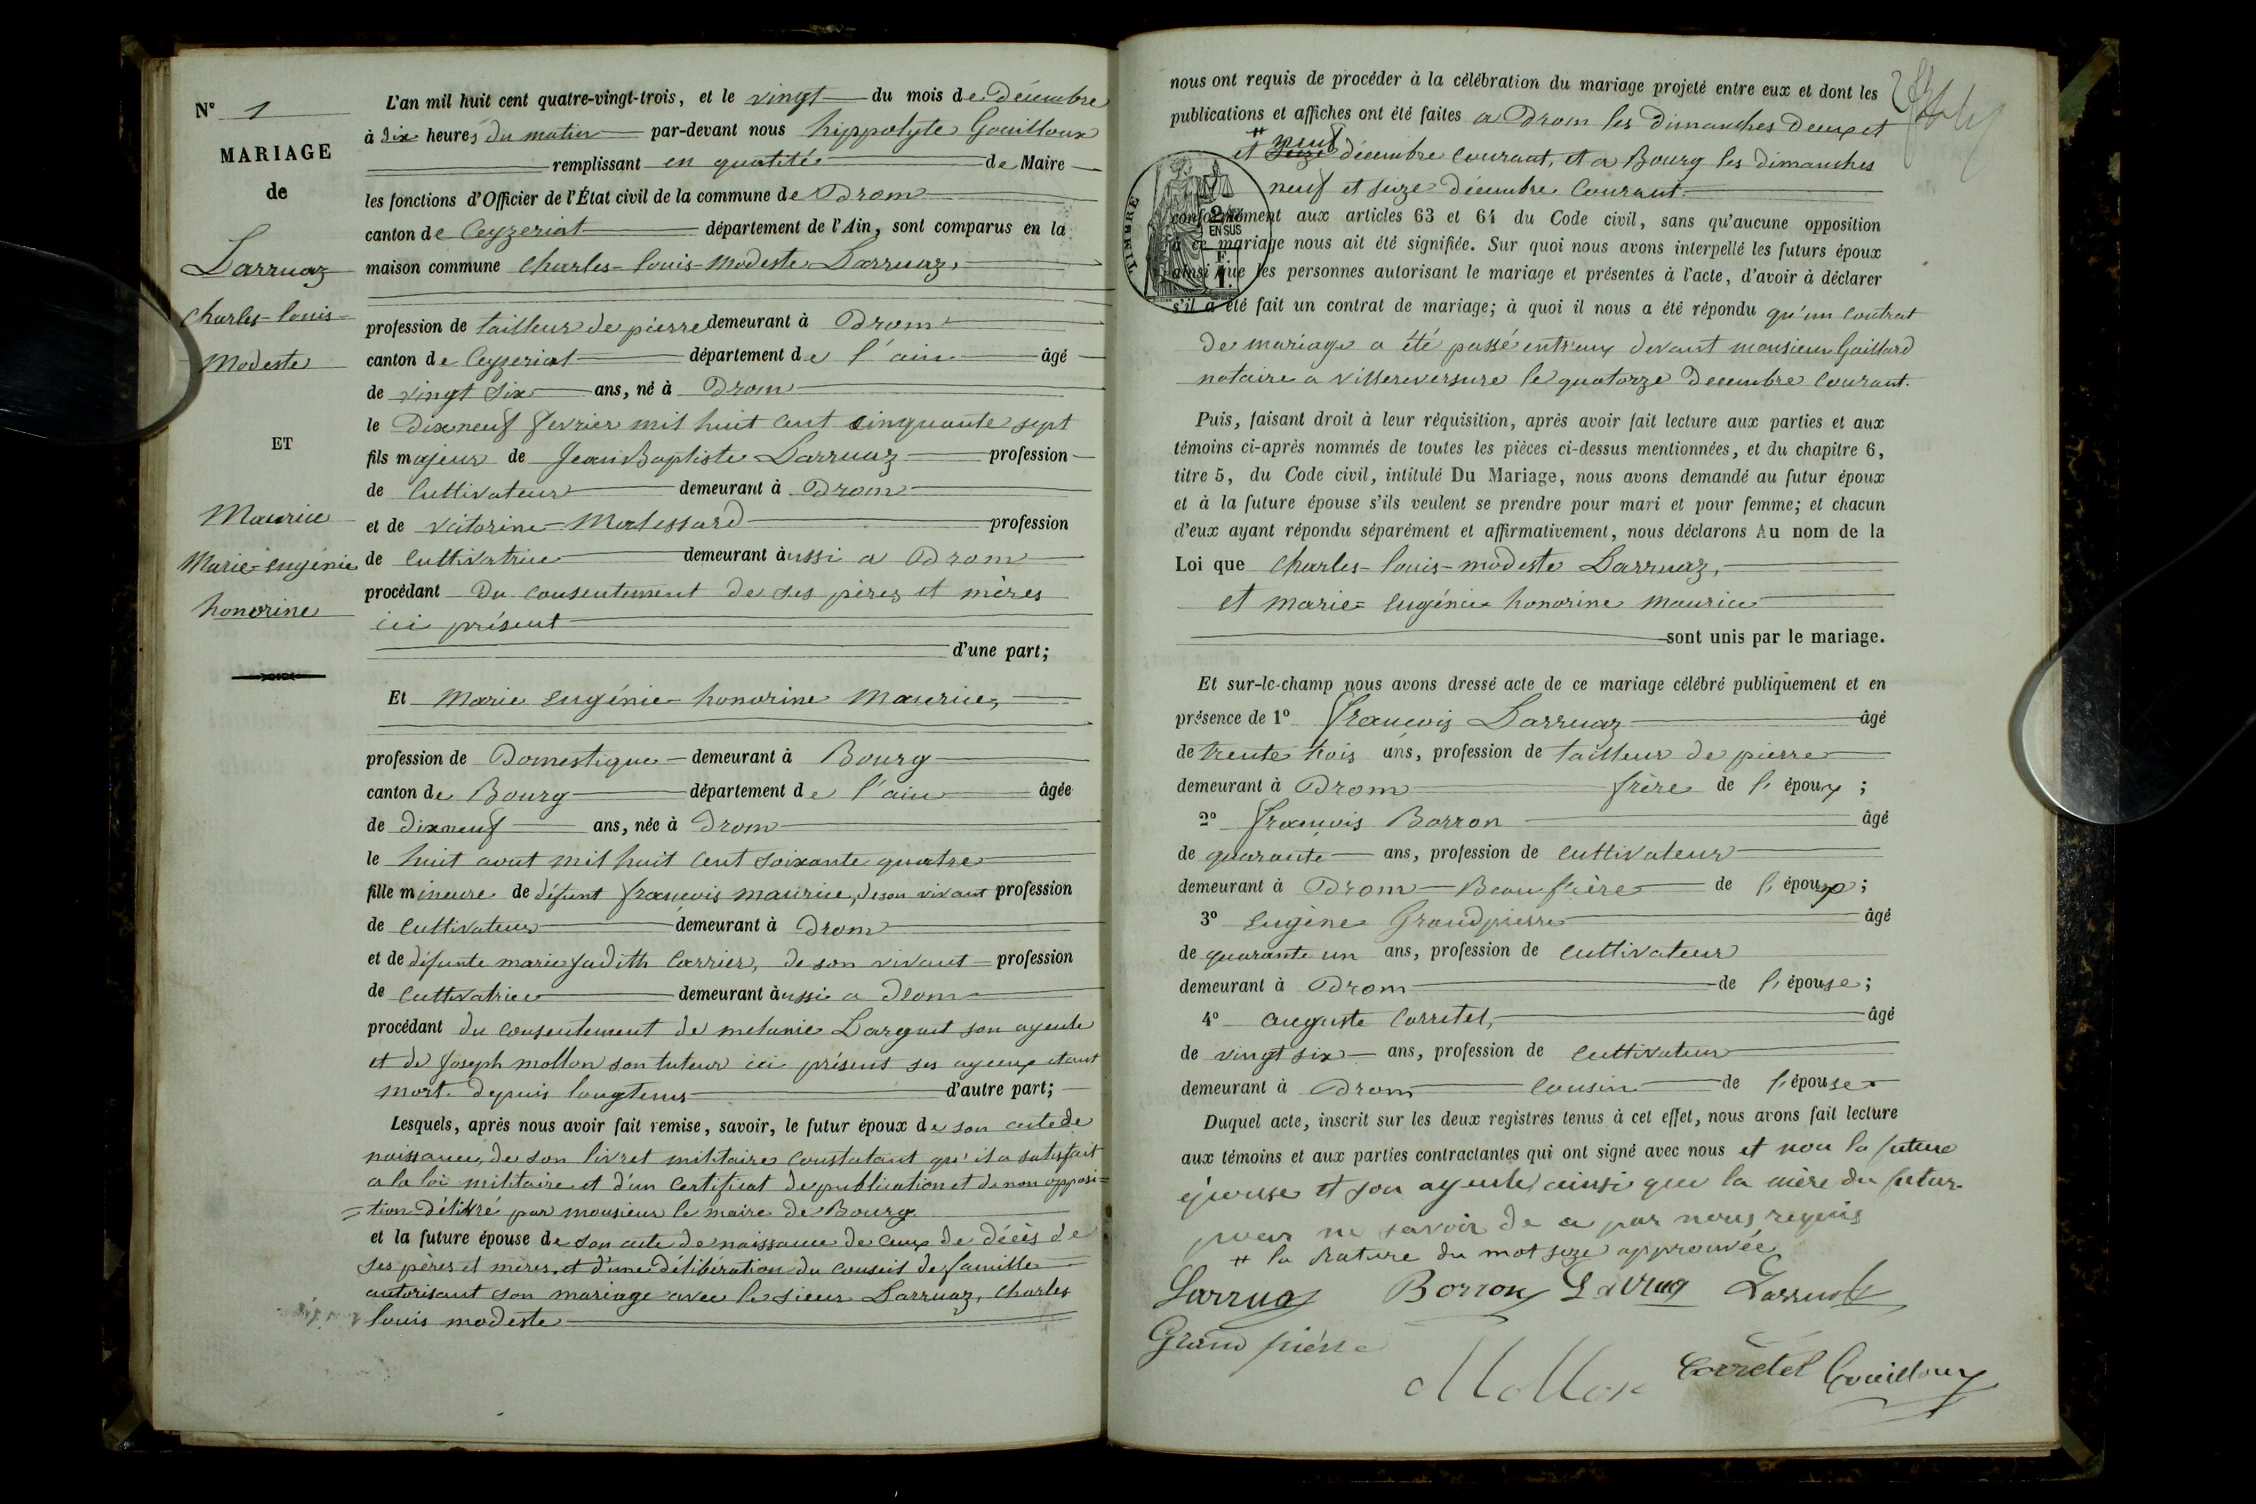 N° 1
MARIAGE
de
Larruaz
Charles-louis-
Modeste
ET
Maurice
Marie-Eugénie
honorine
L'an mil huit cent quatre-vingt-trois, et le vingt du mois de Décembre
à dix heures du matin par-devant nous hippolyte Gouilloux
remplissant en qualitée de Maire
les fonctions d'Officier de l'État civil de la commune de Drom
canton de Ceyzeriat département de l'Ain, sont comparus en la
maison commune Charles-louis-modeste Larruaz,
profession de tailleur de pierre demeurant à Drom
canton de Ceyzeriat département de l'ain âgé
de vingt six ans, né à Drom
le Dixneuf fevrier mil huit cent cinquante sept
fils majeur de Jean Baptiste Larruaz profession
de Cultivateur demeurant à Drom
et de victorine Malessard profession
de Cultivatrice demeurant àussi a Drom
procédant Du consentement de ses pères et mères
ici présent
d'une part;
Et Marie Eugénie honorine Maurice,
profession de Domestique demeurant à Bourg
canton de Bourg département de l'ain âgée
de dixneuf ans, née à Drom
le huit aout mil huit cent soixante quatre
fille mineure de défunt françois maurice, de son vivant profession
de Cultivateur demeurant à Drom
et de défunte marie Judith Carrier, de son vivant profession
de Cultivatrice demeurant àussi a Drom
procédant du consentement de melanie Larguet son ayeule
et de Joseph mollon son tuteur ici présent ses ayeux étant
mort depuis longtems d'autre part;
Lesquels, après nous avoir fait remise, savoir, le futur époux de son acte de
naissance, de son livret militaire constatant qu'il a satisfait
a la loi militaire et d'un certificat de publication et de non opposi=
=tion délivré par monsieur le maire de Bourg
et la future épouse de son acte de naissance de ceux de décès de
ses pères et mères, et d'une délibération du conseil de famille
autorisant son mariage avec le sieur Larruaz, Charles
louis modeste
nous ont requis de procéder à la célébration du mariage projeté entre eux et dont les
publications et affiches ont été faites a Drom les Dimanches Deux et
# neuf
et seize décembre courant, et a Bourg les dimanches
neuf et seize Décembre Courant
TIMBRE
2/10 EN SUS
1 F.
conformément aux articles 63 et 64 du Code civil, sans qu'aucune opposition
à ce mariage nous ait été signifiée. Sur quoi nous avons interpellé les futurs époux
ainsi que les personnes autorisant le mariage et présentes à l'acte, d'avoir à déclarer
s'il a été fait un contrat de mariage; à quoi il nous a été répondu qu'un contrat
de mariage a été passé entr'eux devant monsieur Gaillard
notaire a villereversure le quatorze Decembre courant.
Puis, faisant droit à leur réquisition, après avoir fait lecture aux parties et aux
témoins ci-après nommés de toutes les pièces ci-dessus mentionnées, et du chapitre 6,
titre 5, du Code civil, intitulé Du Mariage, nous avons demandé au futur époux
et à la future épouse s'ils veulent se prendre pour mari et pour femme; et chacun
d'eux ayant répondu séparément et affirmativement, nous déclarons Au nom de la
Loi que Charles-louis-modeste Larruaz,
et Marie-Eugénie honorine Maurice
sont unis par le mariage.
Et sur-le-champ nous avons dressé acte de ce mariage célébré publiquement et en
présence de 1° françois Larruaz âgé
de trente trois ans, profession de tailleur de pierre
demeurant à Drom frère de l'époux;
2° françois Borron âgé
de quarante ans, profession de Cultivateur
demeurant à Drom Beau frère de l'époux;
3° Eugène Grandpierre âgé
de quarante un ans, profession de Cultivateur
demeurant à Drom de l'épouse;
4° Auguste Corretel, âgé
de vingt six ans, profession de Cultivateur
demeurant à Drom Cousin de l'épouse
Duquel acte, inscrit sur les deux registres tenus à cet effet, nous avons fait lecture
aux témoins et aux parties contractantes qui ont signé avec nous et non la future
épouse et son ayeule ainsi que la mère du futur
pour ne savoir de ce par nous requis
# la Rature du mot seize approuvée
Larruaz Borron Larruaz Larruaz
Grand pierre
Mollon Corretel Gouilloux